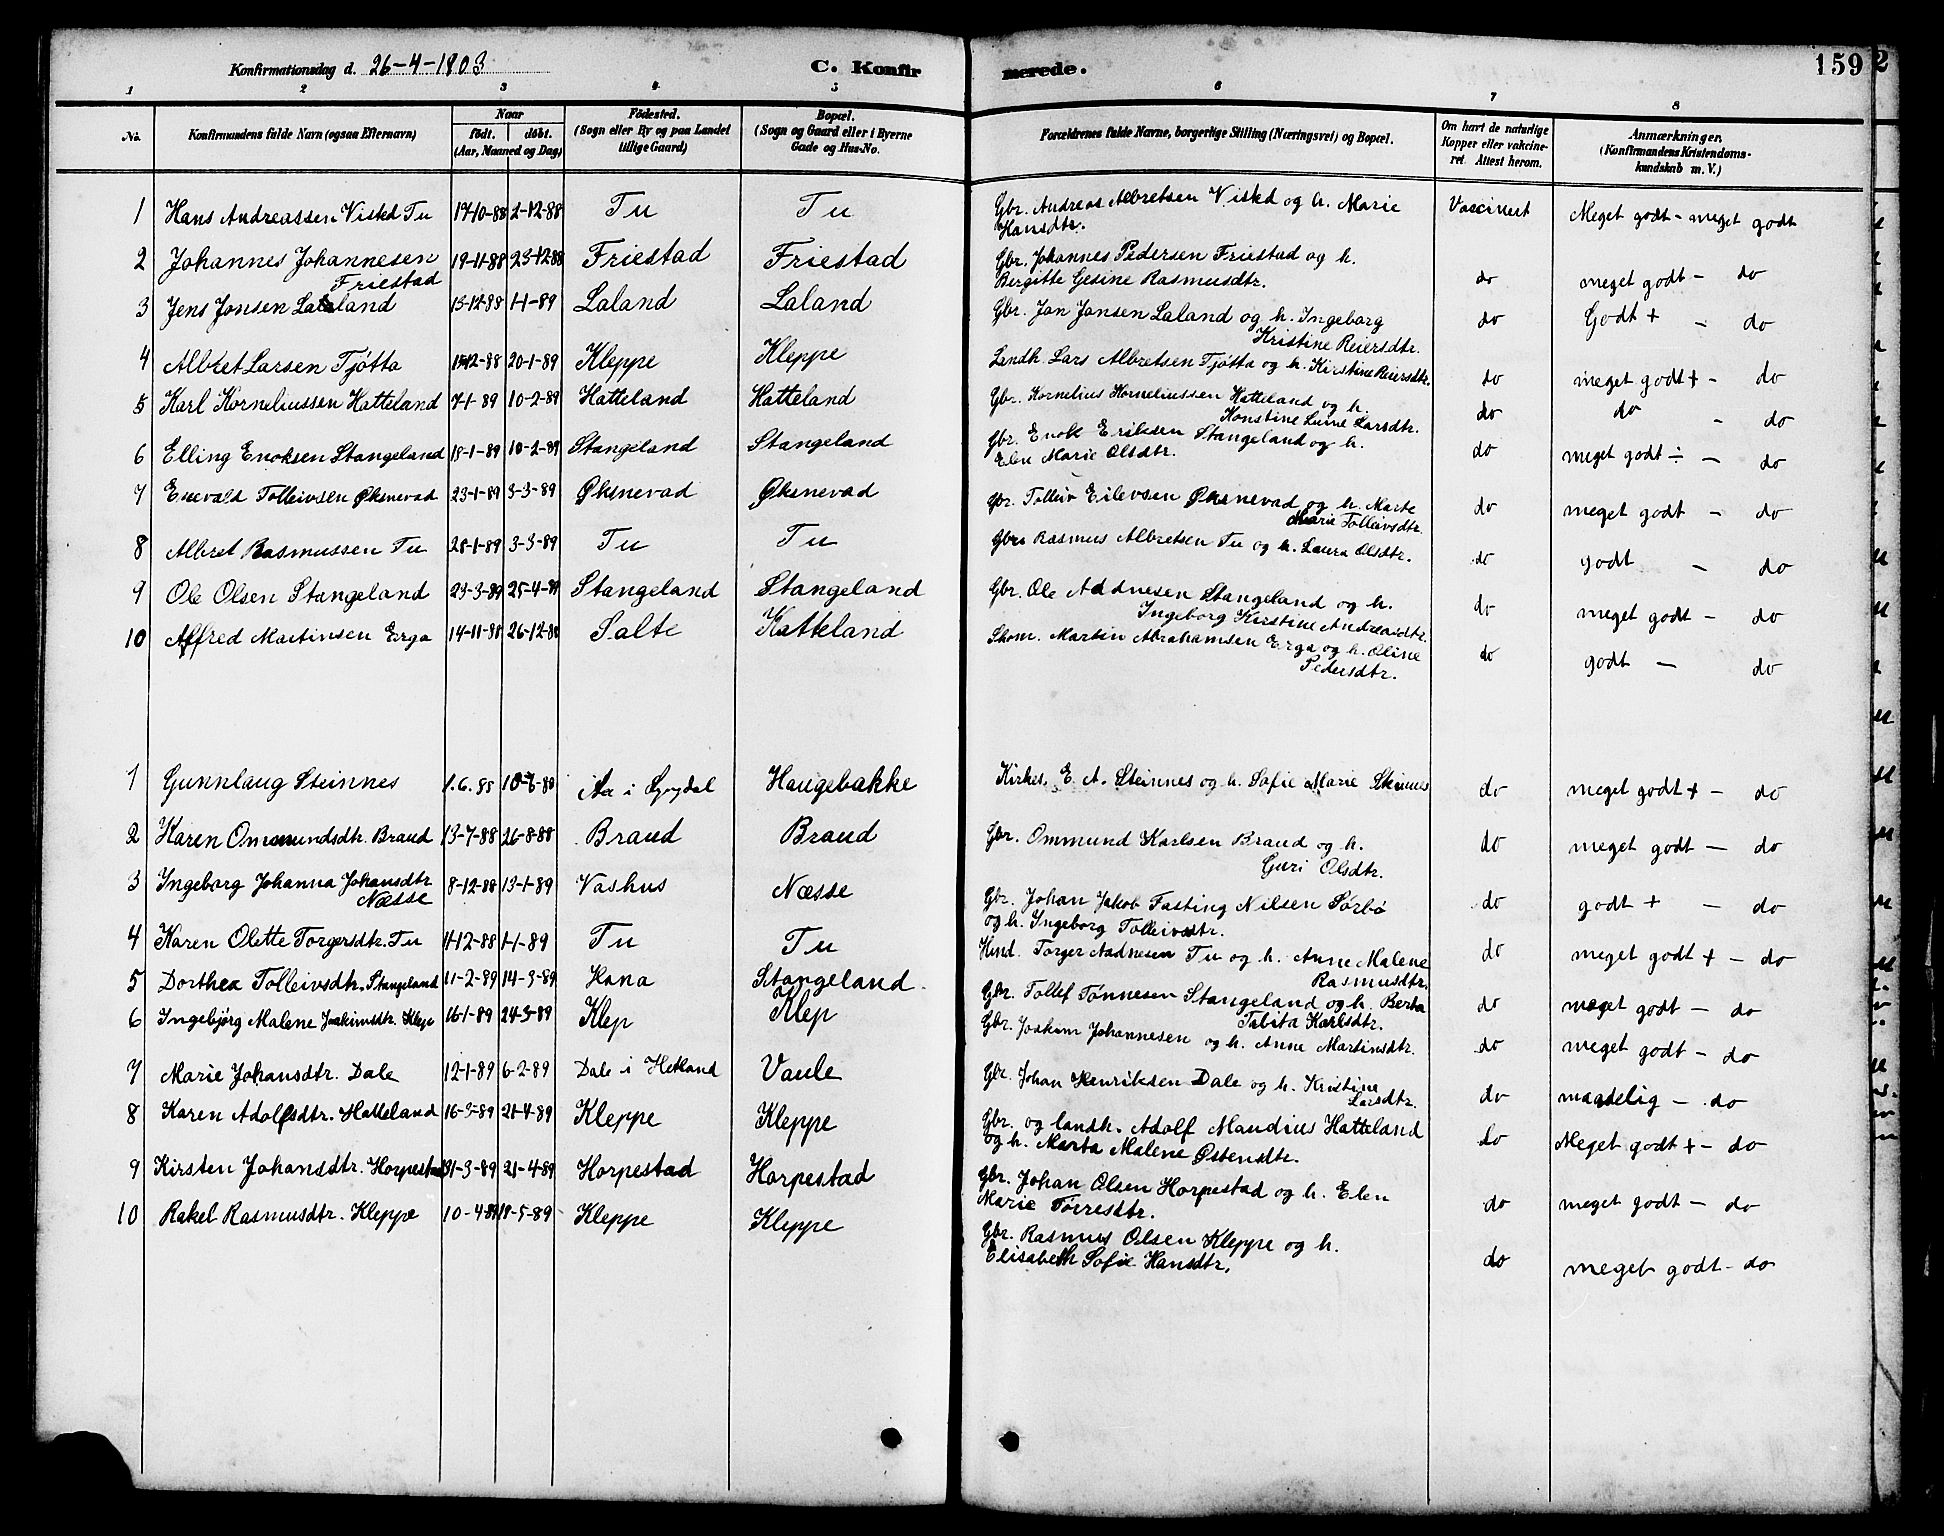 Konfirmationsdag d. 26-4-1903 C. Konfirmerede. 159
1 2 3 4 5 6 7 8
No. Konfirmandens fulde Navn (ogsaa Efternavn) Naar født. døbt. (Aar, Maaned og Dag) Fødested. (Sogn eller By og paa Landet tillige Gaard) Bopæl. (Sogn og Gaard eller i Byerne Gade og Hus-No. Forældrenes fulde Navne, borgerlige Stilling (Næringsvei) og Bopæl. Om havt de naturlige Kopper eller vakcineret. Attest herom. Anmærkninger. (Konfirmandens Kristendomskundskab m. V.)
1 Hans Andreassen Visted Tu 17-10-88 2-12-88 Tu Tu Gbr. Andreas Albretsen Visted og h. Marie Hansdtr. Vascinert Meget godt - meget godt
2 Johannes Johannesen Friestad 19-11-88 23-12-88 Friestad Friestad Gbr. Johannes Pedersen Friestad og h. Bergitte Gesine Rasmusdtr. do meget godt - do
3 Jens Jonsen Laland 13-12-88 1-1-89 Laland Laland Gbr. Jon Jonsen Laland og h. Ingeborg Kristine Reiersdtr. do Godt + - do
4 Albret Larsen Tjøtta 12-88 20-1-89 Kleppe Kleppe Landh. Lars Albretsen Tjøtta og h. Kirstine Reiersdtr. do meget godt + - do
5 Karl Korneliussen Hatteland 7-1-89 10-2-89 Hatteland Hatteland Gbr. Kornelius Korneliussen Hatteland og h. Larsdtr. do do - do
6 Elling Enoksen Stangeland 18-1-89 10-2-89 Stangeland Stangeland Gbr. Enok Eriksen Stangeland og h. Elen Marie Olsdtr. do meget godt ÷ - do
7 Enevald Tolleivsen Øksnevad 23-1-89 3-3-89 Øksnevad Øksnevad Gbr. Tolleiv Eilevsen Øksnevad og h. Marte Marie Tolleivsdtr. do meget godt - do
8 Albret Rasmussen Tu 28-1-89 3-3-89 Tu Tu Gbr. Rasmus Albretsen Tu og h. Laura Olsdtr. do godt - do
9 Ole Olsen Stangeland 23-3-89 25-4-89 Stangeland Stangeland Gbr. Ole Adnesen Stangeland og h. Ingeborg Kirstine Andreasdtr. do meget godt - do
10 Alfred Martinsen Erga 14-11-88 26-12-88 Salte Katteland Skom. Martin Abrahamsen Erga og h. Oline Pedersdtr. do godt - do
1 Gunnlaug Steinnes 1.6.88 Aa i Haugebakke Kirkes. E. A. Steinnes og h. Sofie Marie Steinnes do meget godt + - do
2 Karen Ommundsdtr. Braud 13-7-88 26-8-88 Braud Braud Gbr. Ommund Karlsen Braud og h. Guri Olsdtr. do meget godt - do
3 Ingeborg Johanna Johansdtr Næsse 8-12-88 13-1-89 Vashus Næsse Gbr. Johan Jakob Fasting Nilsen Sørbø og h. Ingeborg Tolleivsdtr. do godt + - do
4 Karen Olette Torgersdtr. Tu 11-12-88 1-1-89 Tu Tu Torger Aadnesen Tu og h. Anne Malene Rasmusdtr. do meget godt + - do
5 Dorthea Tolleivsdtr. Stangeland 11-2-89 14-3-89 Hana Stangeland. Gbr. Tollef Tønnesen Stangeland og h. Berta Tabita Karlsdtr. do meget godt - do
6 Ingebjørg Malene Joakimsdtr Klep 16-1-89 24-3-89 Klep Klep Gbr. Joakim Johannesen og h. Anne Martinsdtr. do meget godt - do
7 Marie Johansdtr. Dale 12-1-89 6-2-89 Dale i Hetland Vaule Gbr. Johan Henriksen Dale og h. Kristine Larsdtr. do maadelig - do
8 Karen Adolfsdtr. Hatteland 16-3-89 21-4-89 Kleppe Kleppe Gbr. og landh. Adolf Maudius Hatteland og h. Marta Malene Østensdtr. do Meget godt + - do
9 Kirsten Johansdtr. Horpestad 31-3-89 21-4-89 Horpestad Horpestad Gbr. Johan Olsen Horpestad og h. Elen Marie Torresdtr. do meget godt - do
10 Rakel Rasmusdtr. Kleppe 10-4-89 18-5-89 Kleppe Kleppe Gbr. Rasmus Olsen Kleppe og h. Elisabeth Sofie Hansdtr. do meget godt - do